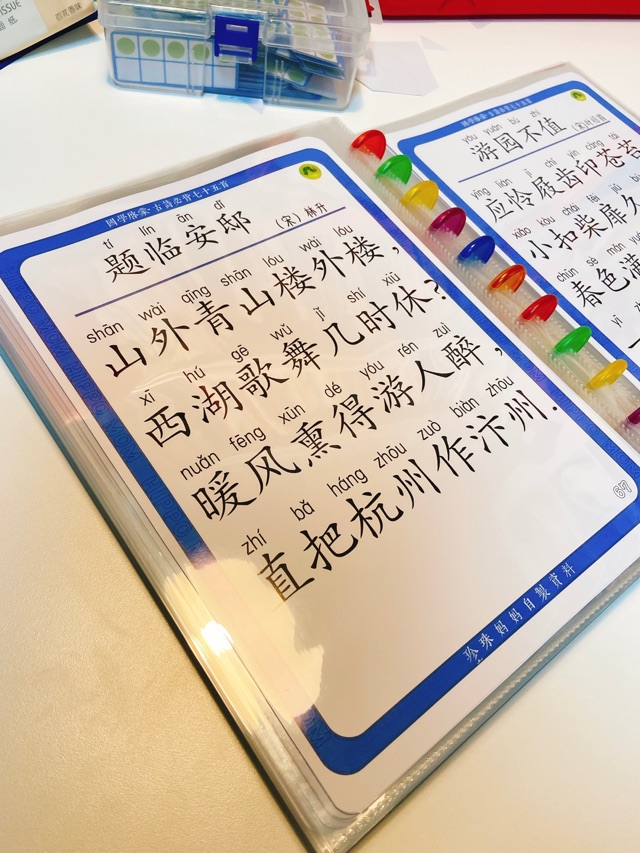 ISSUE
国学启蒙·古诗必背七十五首
tí lín ān dǐ
题临安邸
(宋)林升
shān wài qīng shān lóu wài lóu
山外青山楼外楼，
xī hú gē wǔ jǐ shí xiū
西湖歌舞几时休？
nuǎn fēng xūn dé yóu rén zuì
暖风熏得游人醉，
zhí bǎ háng zhōu zuò biàn zhōu
直把杭州作汴州.
67
珍珠妈妈自製资料
yóu yuán bù zhí
游园不值
yīng lián jī chǐ yìn cāng tái
应怜屐齿印苍苔
xiǎo kòu chái fēi jiǔ
小扣柴扉久
chūn sè mǎn
春色满
yì
一